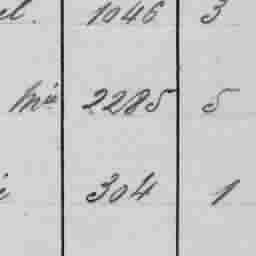 el. 1046 3
2285 5
304 1